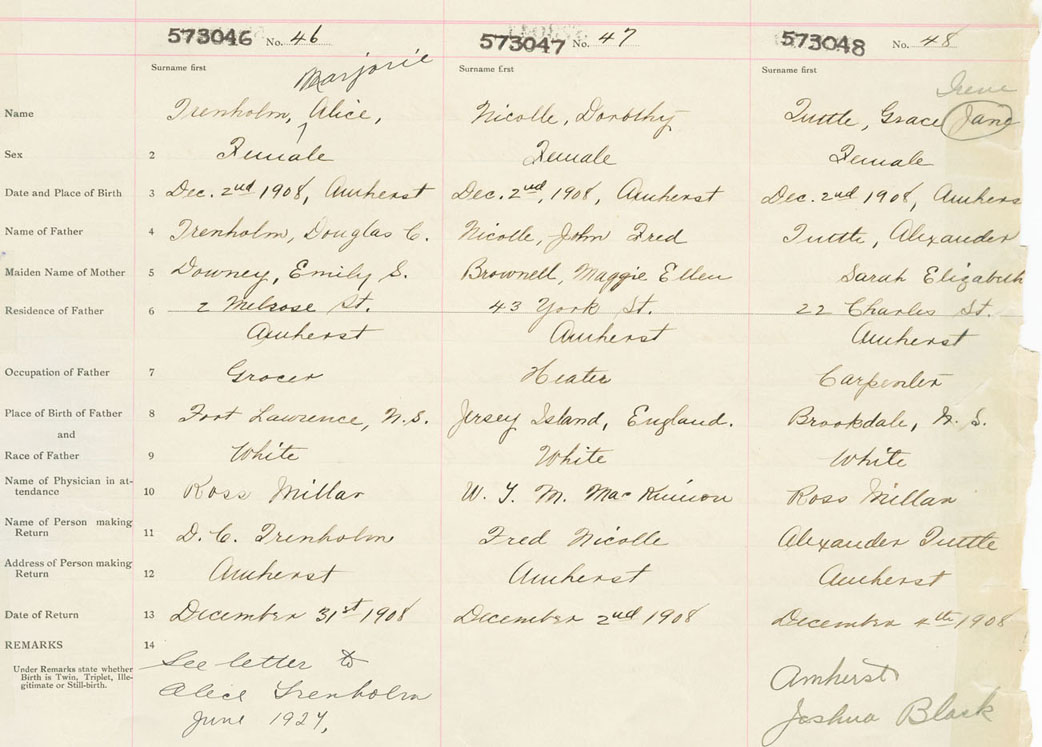 573046 No. 46 573047 No. 47 573048 No. 48
Surname first Surname first Surname first
Marjorie Irene
Name Trenholm, Alice, Nicolle, Dorothy Tuttle, Grace Jane
Sex 2 Female Female Female
Date and Place of Birth 3 Dec. 2nd 1908, Amherst Dec. 2nd, 1908, Amherst Dec. 2nd 1908, Amhers
Name of Father 4 Trenholm, Douglas C. Nicolle, John Fred Tuttle, Alexander
Maiden Name of Mother 5 Downey, Emily S. Brownell, Maggie Ellen Sarah Elizabeth
Residence of Father 6 2 Melrose St. 43 York St. 22 Charles St.
Amherst Amherst Amherst
Occupation of Father 7 Grocer Heater Carpenter
Place of Birth of Father 8 Fort Lawrence, N.S. Jersey Island, England. Brookdale, N.S.
and
Race of Father 9 White White White
Name of Physician in at-
tendance 10 Ross Millar W. T. M. MacKinnon Ross Millar
Name of Person making
Return 11 D. C. Trenholm Fred Nicolle Alexander Tuttle
Address of Person making
Return 12 Amherst Amherst Amherst
Date of Return 13 December 31st 1908 December 2nd 1908 December 4th 1908
REMARKS 14
Under Remarks state whether
Birth is Twin, Triplet, Ille-
gitimate or Still-birth.
See letter to
Alice Trenholm
June 1927,
Amherst
Joshua Black